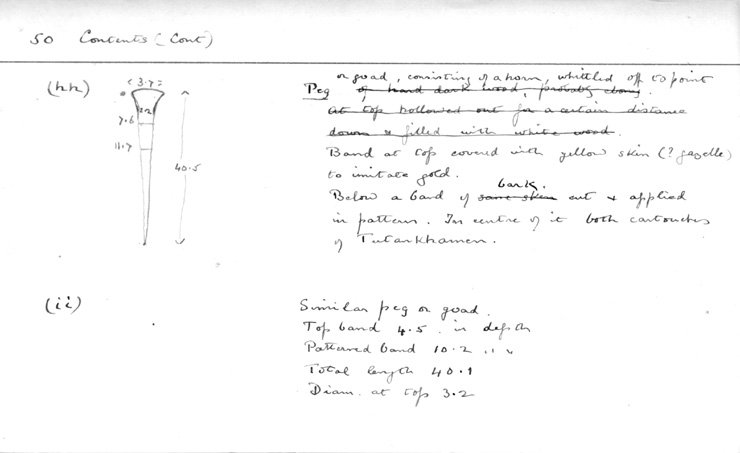 50 Contents (Cont)
(hh)
< 3.7 >
2.2
7.6
11.7
40.5
or goad, consisting of a horn, whittled off to point
Peg of hard dark wood, probably ebony.
At top hollowed out for a certain distance
down & filled with white wood.
Band at top covered with yellow skin (? gazelle)
to imitate gold.
bark.
Below a band of same skin cut & applied
in pattern. In centre of it both cartouches
of Tutankhamen.
(ii)
Similar peg or goad.
Top band 4.5 in depth
Patterned band 10.2 " "
Total length 40.1
Diam. at top 3.2